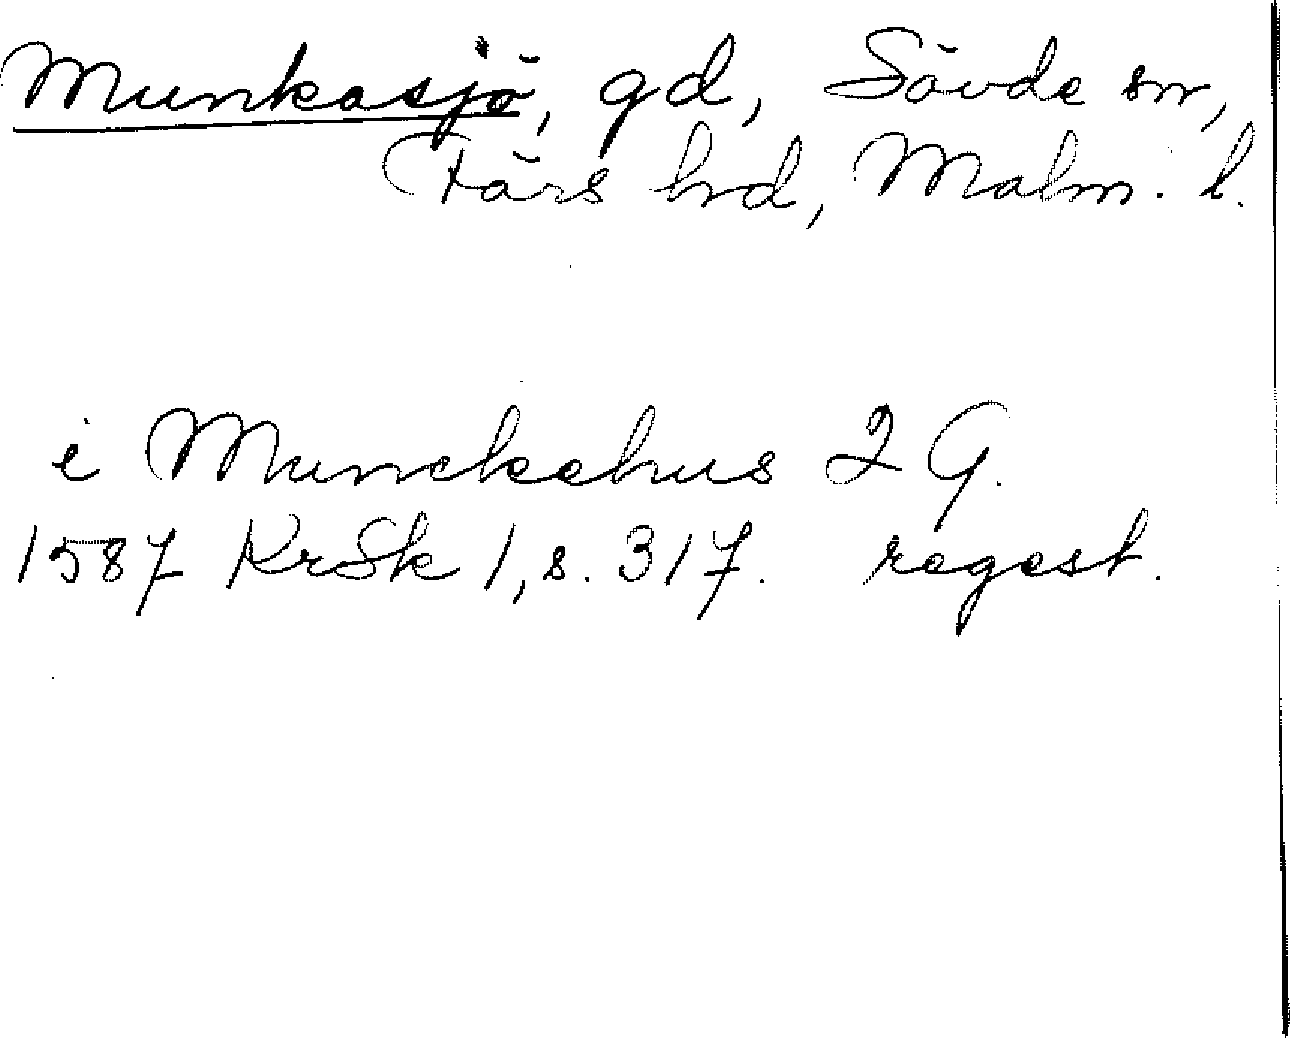 Munkasjö, gd, Sövde sn,
Färs hrd, Malm. l.
i Munckehus 2 G.
1587 KrSk 1, s. 317. regest.